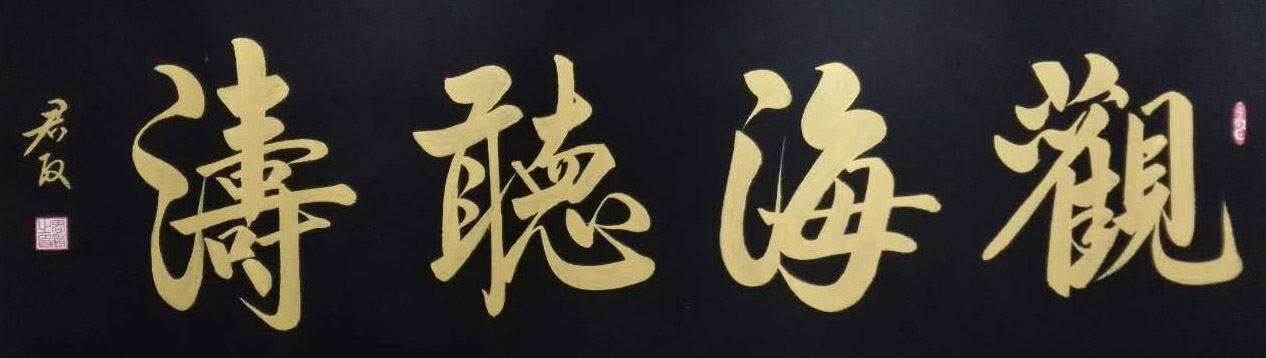 觀海聽濤
君政